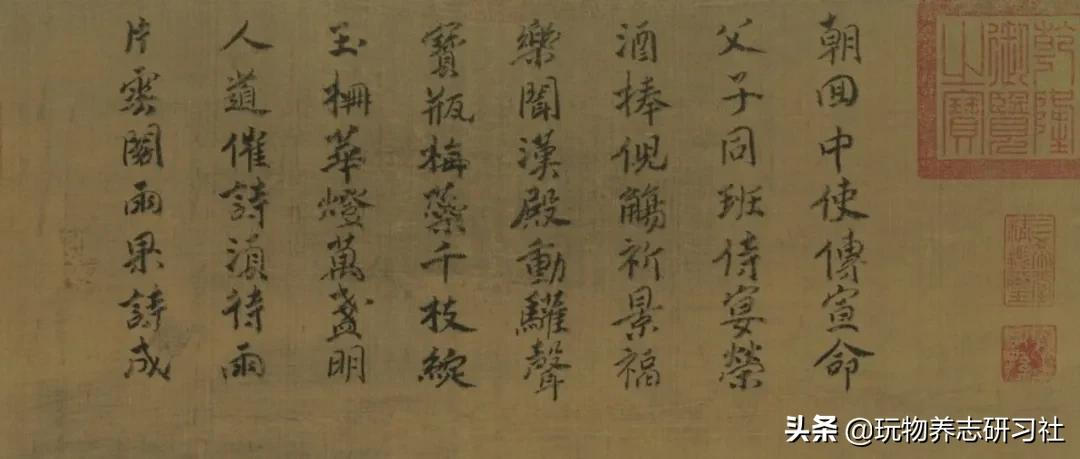 乾隆御覽之寶
三希堂精鑑璽
朝回中使傳宣命
父子同班侍宴榮
酒捧倪觴祈景福
樂聞漢殿動驩聲
寶瓶梅蘂千枝綻
玉柵華燈萬盞明
人道催詩湏待雨
片雲閣雨果詩成
头条 @玩物养志研习社